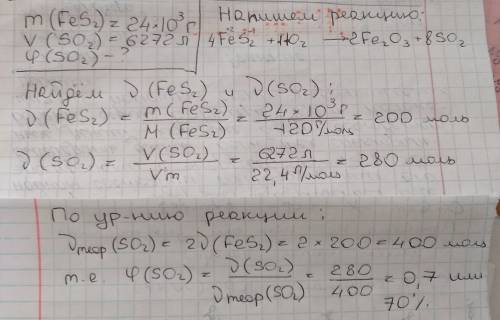 m(FeS₂)=24×10³г
V(SO₂)=6272л
φ(SO₂)-?
Напишем реакцию:
4FeS₂+11O₂→2Fe₂O₃+8SO₂
Найдём ν(FeS₂) и ν(SO₂):
ν(FeS₂) = m(FeS₂)/M(FeS₂) = 24×10³г/120г/моль = 200 моль
ν(SO₂) = V(SO₂)/Vm = 6272л/22,4л/моль = 280 моль
По ур-нию реакции:
νтеор(SO₂)=2ν(FeS₂)=2×200=400 моль
т.е. φ(SO₂) = ν(SO₂)/νтеор(SO₂) = 280/400 = 0,7 или
70%.